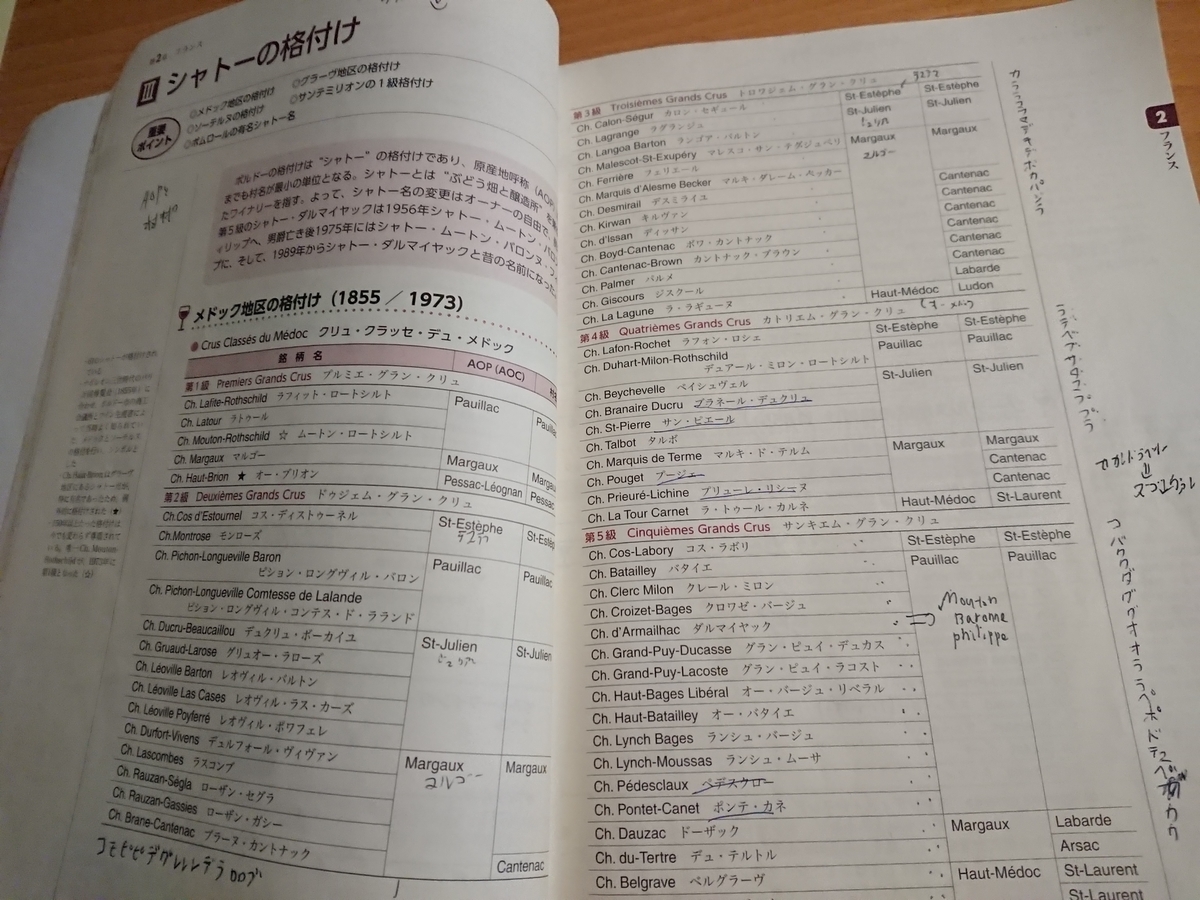 第2章 フランス
III シャトーの格付け
重要ポイント
◎メドック地区の格付け ◎グラーヴ地区の格付け
◎ソーテルヌの格付け ◎サンテミリオンの1級格付け
◎ポムロールの有名シャトー名
ボルドーの格付けは“シャトー”の格付けであり、原産地呼称(AOP
までも村名が最小の単位となる。シャトーとは“ぶどう畑と醸造所”を
たワイナリーを指す。よって、シャトー名の変更はオーナーの自由で、
第5級のシャトー・ダルマイヤックは1956年シャトー・ムートン・バロ
ィリップへ、男爵亡き後1975年にはシャトー・ムートン・バロンヌ・フ
プに、そして、1989年からシャトー・ダルマイヤックと昔の名前になった
メドック地区の格付け(1855/1973)
● Crus Classés du Médoc クリュ・クラッセ・デュ・メドック
銘柄名 AOP (AOC)
第1級 Premiers Grands Crus プルミエ・グラン・クリュ
Ch. Lafite-Rothschild ラフィット・ロートシルト Pauillac
Ch. Latour ラトゥール
Ch. Mouton-Rothschild ☆ ムートン・ロートシルト
Ch. Margaux マルゴー Margaux
Ch. Haut-Brion ★ オー・ブリオン Pessac-Léognan
第2級 Deuxièmes Grands Crus ドゥジェム・グラン・クリュ
Ch.Cos d'Estournel コス・ディストゥーネル St-Estèphe
Ch.Montrose モンローズ
Ch. Pichon-Longueville Baron Pauillac
ピション・ロングヴィル・バロン
Ch. Pichon-Longueville Comtesse de Lalande
ピション・ロングヴィル・コンテス・ド・ラランド
Ch. Ducru-Beaucaillou デュクリュ・ボーカイユ St-Julien
Ch. Gruaud-Larose グリュオー・ラローズ
Ch. Léoville Barton レオヴィル・バルトン
Ch. Léoville Las Cases レオヴィル・ラス・カーズ
Ch. Léoville Poyferré レオヴィル・ポワフェレ
Ch. Durfort-Vivens デュルフォール・ヴィヴァン Margaux Margaux
Ch. Lascombes ラスコンブ マルゴー
Ch. Rauzan-Ségla ローザン・セグラ
Ch. Rauzan-Gassies ローザン・ガシー
Ch. Brane-Cantenac ブラーヌ・カントナック Cantenac
コモピピデグレレレデラロロブ
第3級 Troisièmes Grands Crus トロワジェム・グラン・クリュ
Ch. Calon-Ségur カロン・セギュール St-Estèphe St-Estèphe
Ch. Lagrange ラグランジュ St-Julien St-Julien
Ch. Langoa Barton ランゴア・バルトン
Ch. Malescot-St-Exupéry マレスコ・サン・テグジュペリ Margaux Margaux
Ch. Ferrière フェリエール マルゴー
Ch. Marquis d'Alesme Becker マルキ・ダレーム・ベッカー
Ch. Desmirail デスミライユ Cantenac
Ch. Kirwan キルヴァン Cantenac
Ch. d'Issan ディッサン Cantenac
Ch. Boyd-Cantenac ボワ・カントナック Cantenac
Ch. Cantenac-Brown カントナック・ブラウン Cantenac
Ch. Palmer パルメ Cantenac
Ch. Giscours ジスクール Labarde
Ch. La Lagune ラ・ラギューヌ Haut-Médoc Ludon
第4級 Quatrièmes Grands Crus カトリエム・グラン・クリュ
Ch. Lafon-Rochet ラフォン・ロシェ St-Estèphe St-Estèphe
Ch. Duhart-Milon-Rothschild Pauillac Pauillac
デュアール・ミロン・ロートシルト
Ch. Beychevelle ベイシュヴェル St-Julien St-Julien
Ch. Branaire Ducru ブラネール・デュクリュ
Ch. St-Pierre サン・ピエール
Ch. Talbot タルボ
Ch. Marquis de Terme マルキ・ド・テルム Margaux Margaux
Ch. Pouget プージェ Cantenac
Ch. Prieuré-Lichine プリューレ・リシーヌ Cantenac
Ch. La Tour Carnet ラ・トゥール・カルネ Haut-Médoc St-Laurent
第5級 Cinquièmes Grands Crus サンキエム・グラン・クリュ
Ch. Cos-Labory コス・ラボリ St-Estèphe St-Estèphe
Ch. Batailley バタイエ Pauillac Pauillac
Ch. Clerc Milon クレール・ミロン
Ch. Croizet-Bages クロワゼ・バージュ
Ch. d'Armailhac ダルマイヤック Mouton Baronne philippe
Ch. Grand-Puy-Ducasse グラン・ピュイ・デュカス
Ch. Grand-Puy-Lacoste グラン・ピュイ・ラコスト
Ch. Haut-Bages Libéral オー・バージュ・リベラル
Ch. Haut-Batailley オー・バタイエ
Ch. Lynch Bages ランシュ・バージュ
Ch. Lynch-Moussas ランシュ・ムーサ
Ch. Pédesclaux ペデスクロー
Ch. Pontet-Canet ポンテ・カネ
Ch. Dauzac ドーザック Margaux Labarde
Ch. du-Tertre デュ・テルトル Arsac
Ch. Belgrave ベルグラーヴ Haut-Médoc St-Laurent
St-Laurent
2 フランス